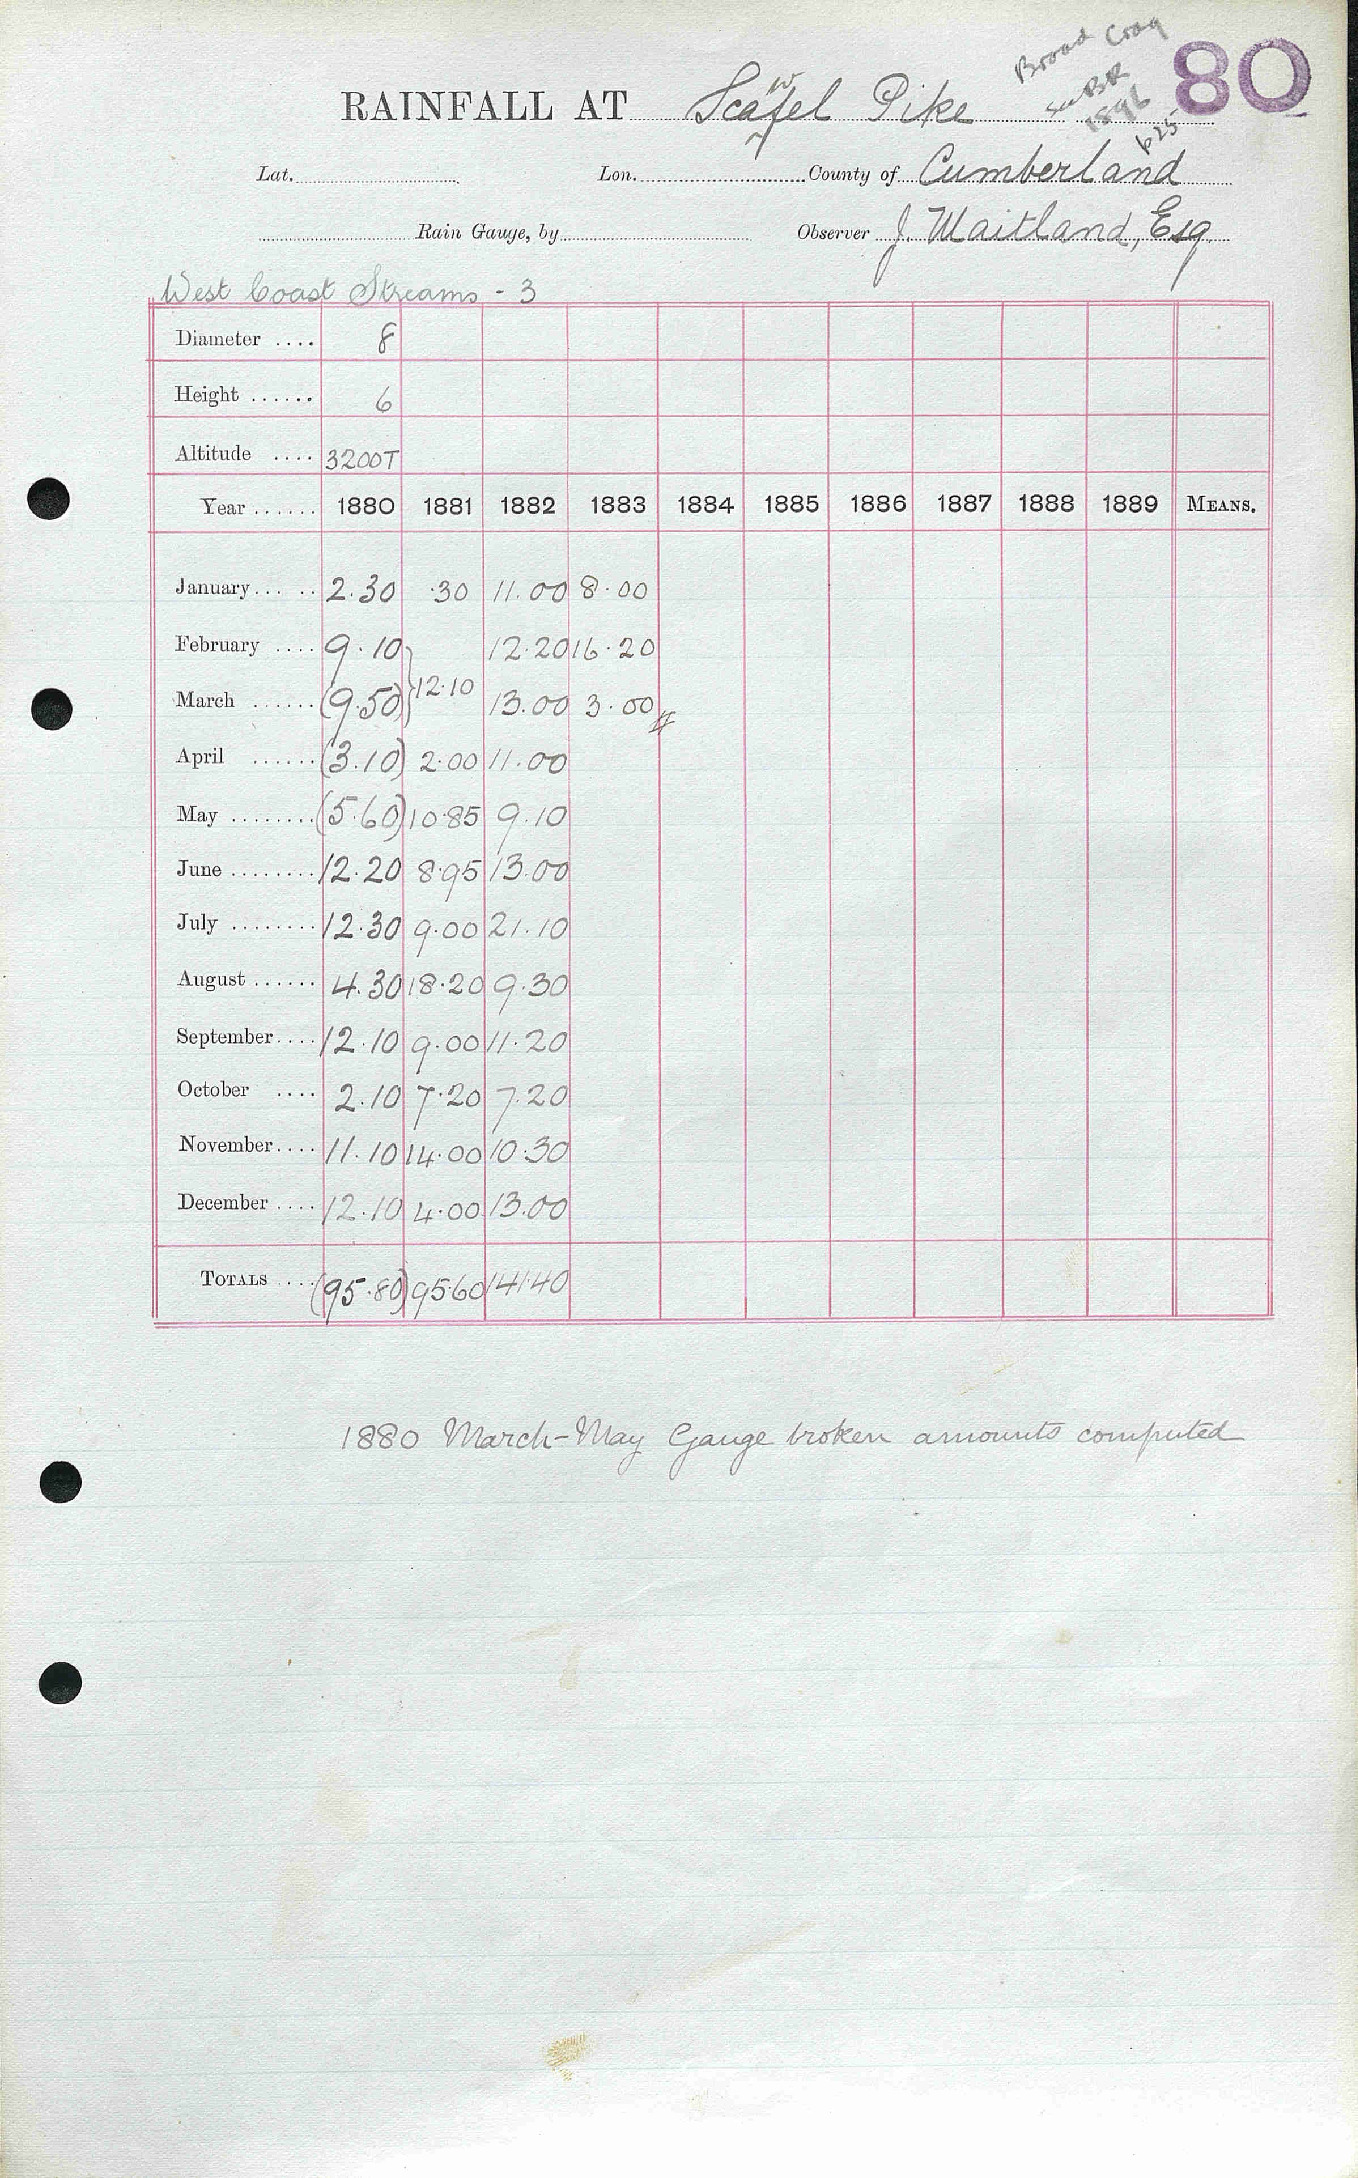 Broad Crag
80
see BR
1896
p25
RAINFALL AT Scafel Pike
w
Lat. Lon. County of Cumberland
Rain Gauge, by Observer J. Maitland, Esq
West Coast Streams - 3
Diameter .... 8
Height ...... 6
Altitude .... 3200T
Year ...... 1880 1881 1882 1883 1884 1885 1886 1887 1888 1889 MEANS.
January... .. 2.30 .30 11.00 8.00
February .... 9.10 12.20 16.20
March ...... (9.50) } 12.10 13.00 3.00 //
April ...... (3.10) 2.00 11.00
May ........ (5.60) 10.85 9.10
June ........ 12.20 8.95 13.00
July ........ 12.30 9.00 21.10
August ...... 4.30 18.20 9.30
September.... 12.10 9.00 11.20
October .... 2.10 7.20 7.20
November.... 11.10 14.00 10.30
December .... 12.10 4.00 13.00
TOTALS .... (95.80) 95.60 141.40
1880 March-May Gauge broken amounts computed